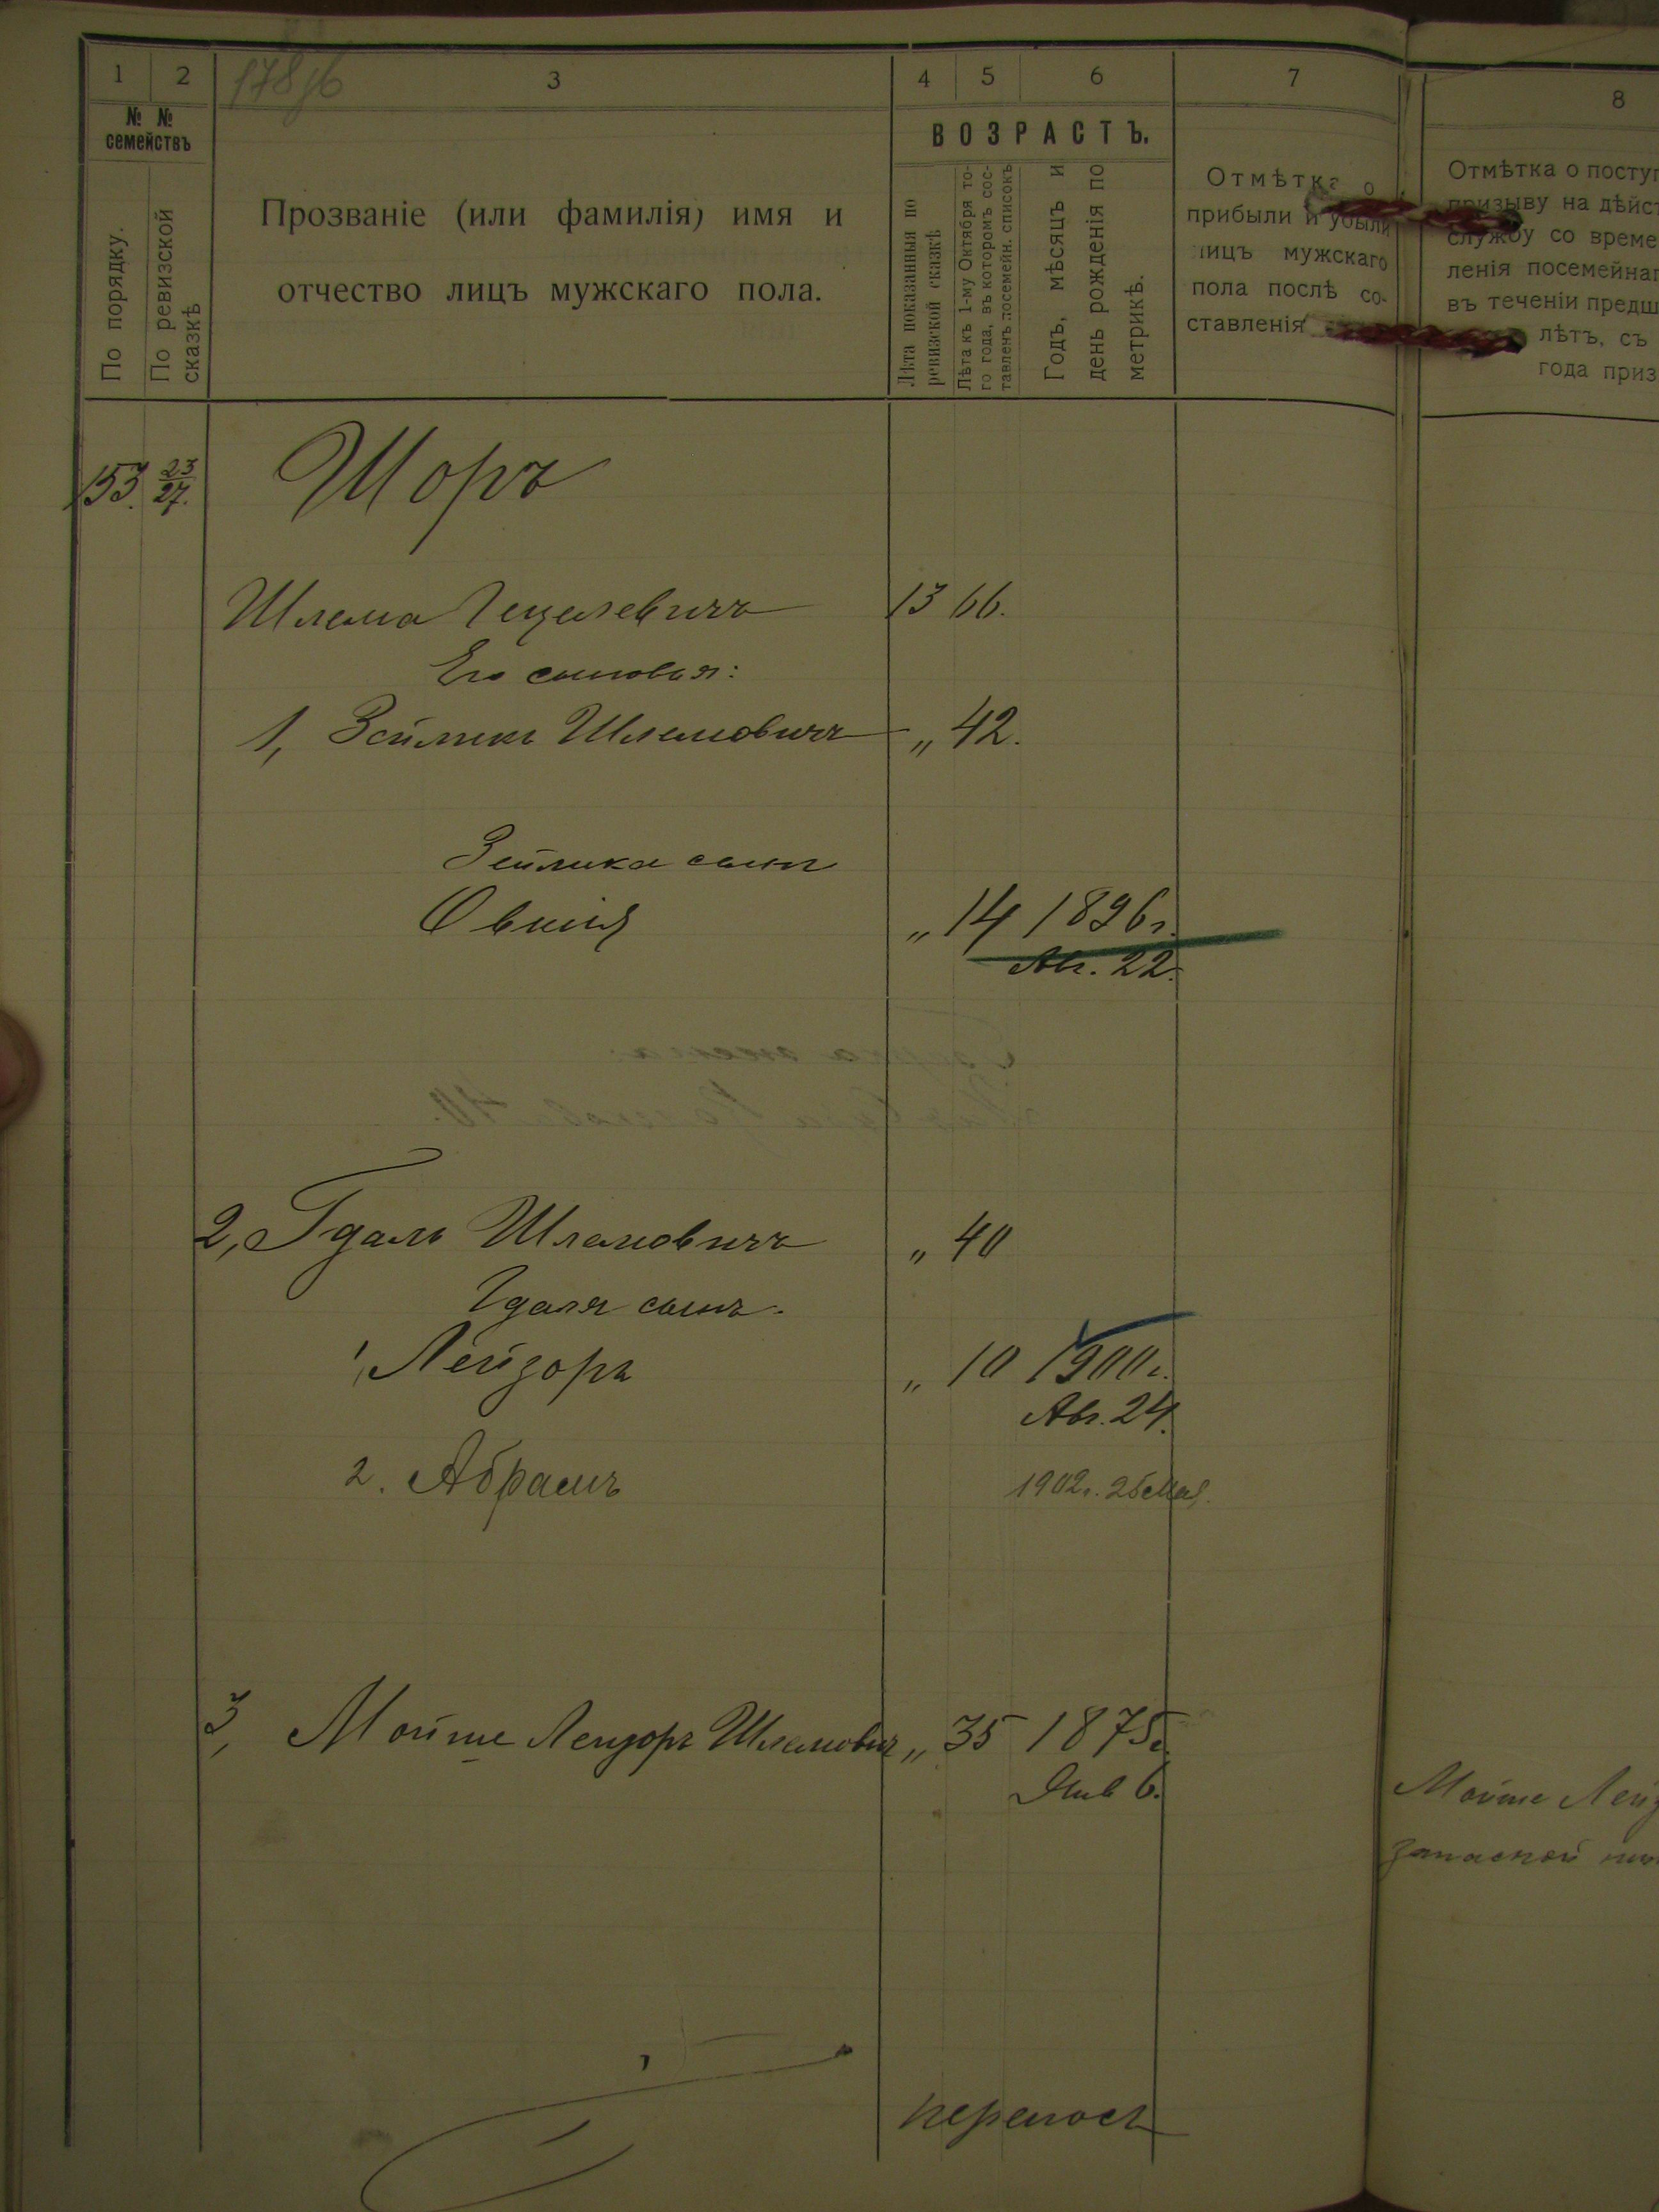 178 об
1 2 3 4 5 6 7
№ № семействъ
По порядку.
По ревизской сказкѣ
Прозваніе (или фамилія) имя и
отчество лицъ мужскаго пола.
ВОЗРАСТЪ.
Лѣта показанныя по
ревизской сказкѣ
Лѣта къ 1-му Октября то-
го года, въ которомъ сос-
тавленъ посемейн. списокъ
Годъ, мѣсяцъ и
день рожденія по
метрикѣ.
Отмѣтка о
прибыли и убыли
лицъ мужскаго
пола послѣ со-
ставленія
8
Отмѣтка о поступ
призыву на дѣйст
службу со време
ленія посемейнаг
въ теченіи предш
лѣтъ, съ
года приз
153. 23/27. Шоръ
Шлема Гецелевичъ 13 66.
Его сыновья:
1, Зейликъ Шлемовичъ „ 42.
Зейлика сынъ
Овшія „ 14 1896г.
Авг. 22.
2, Гдаль Шлемовичъ „ 40
Гдаля сынъ.
1, Лейзоръ „ 10 1900г.
Авг. 24.
2. Абрамъ 1902г. 25 Мая.
3, Мойше Лейзоръ Шлемович „ 35 1875г.
Янв 6.
Мойше Лейз
запасной
переносъ